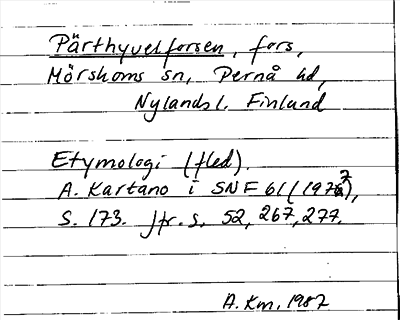 Pärthyvelforsen, fors,
Mörskoms sn, Pernå hd,
Nylands l. Finland
Etymologi (fled).
A. Kartano i SNF 61 (1977),
s. 173. Jfr. s. 52, 267, 277.
A. Km. 1987